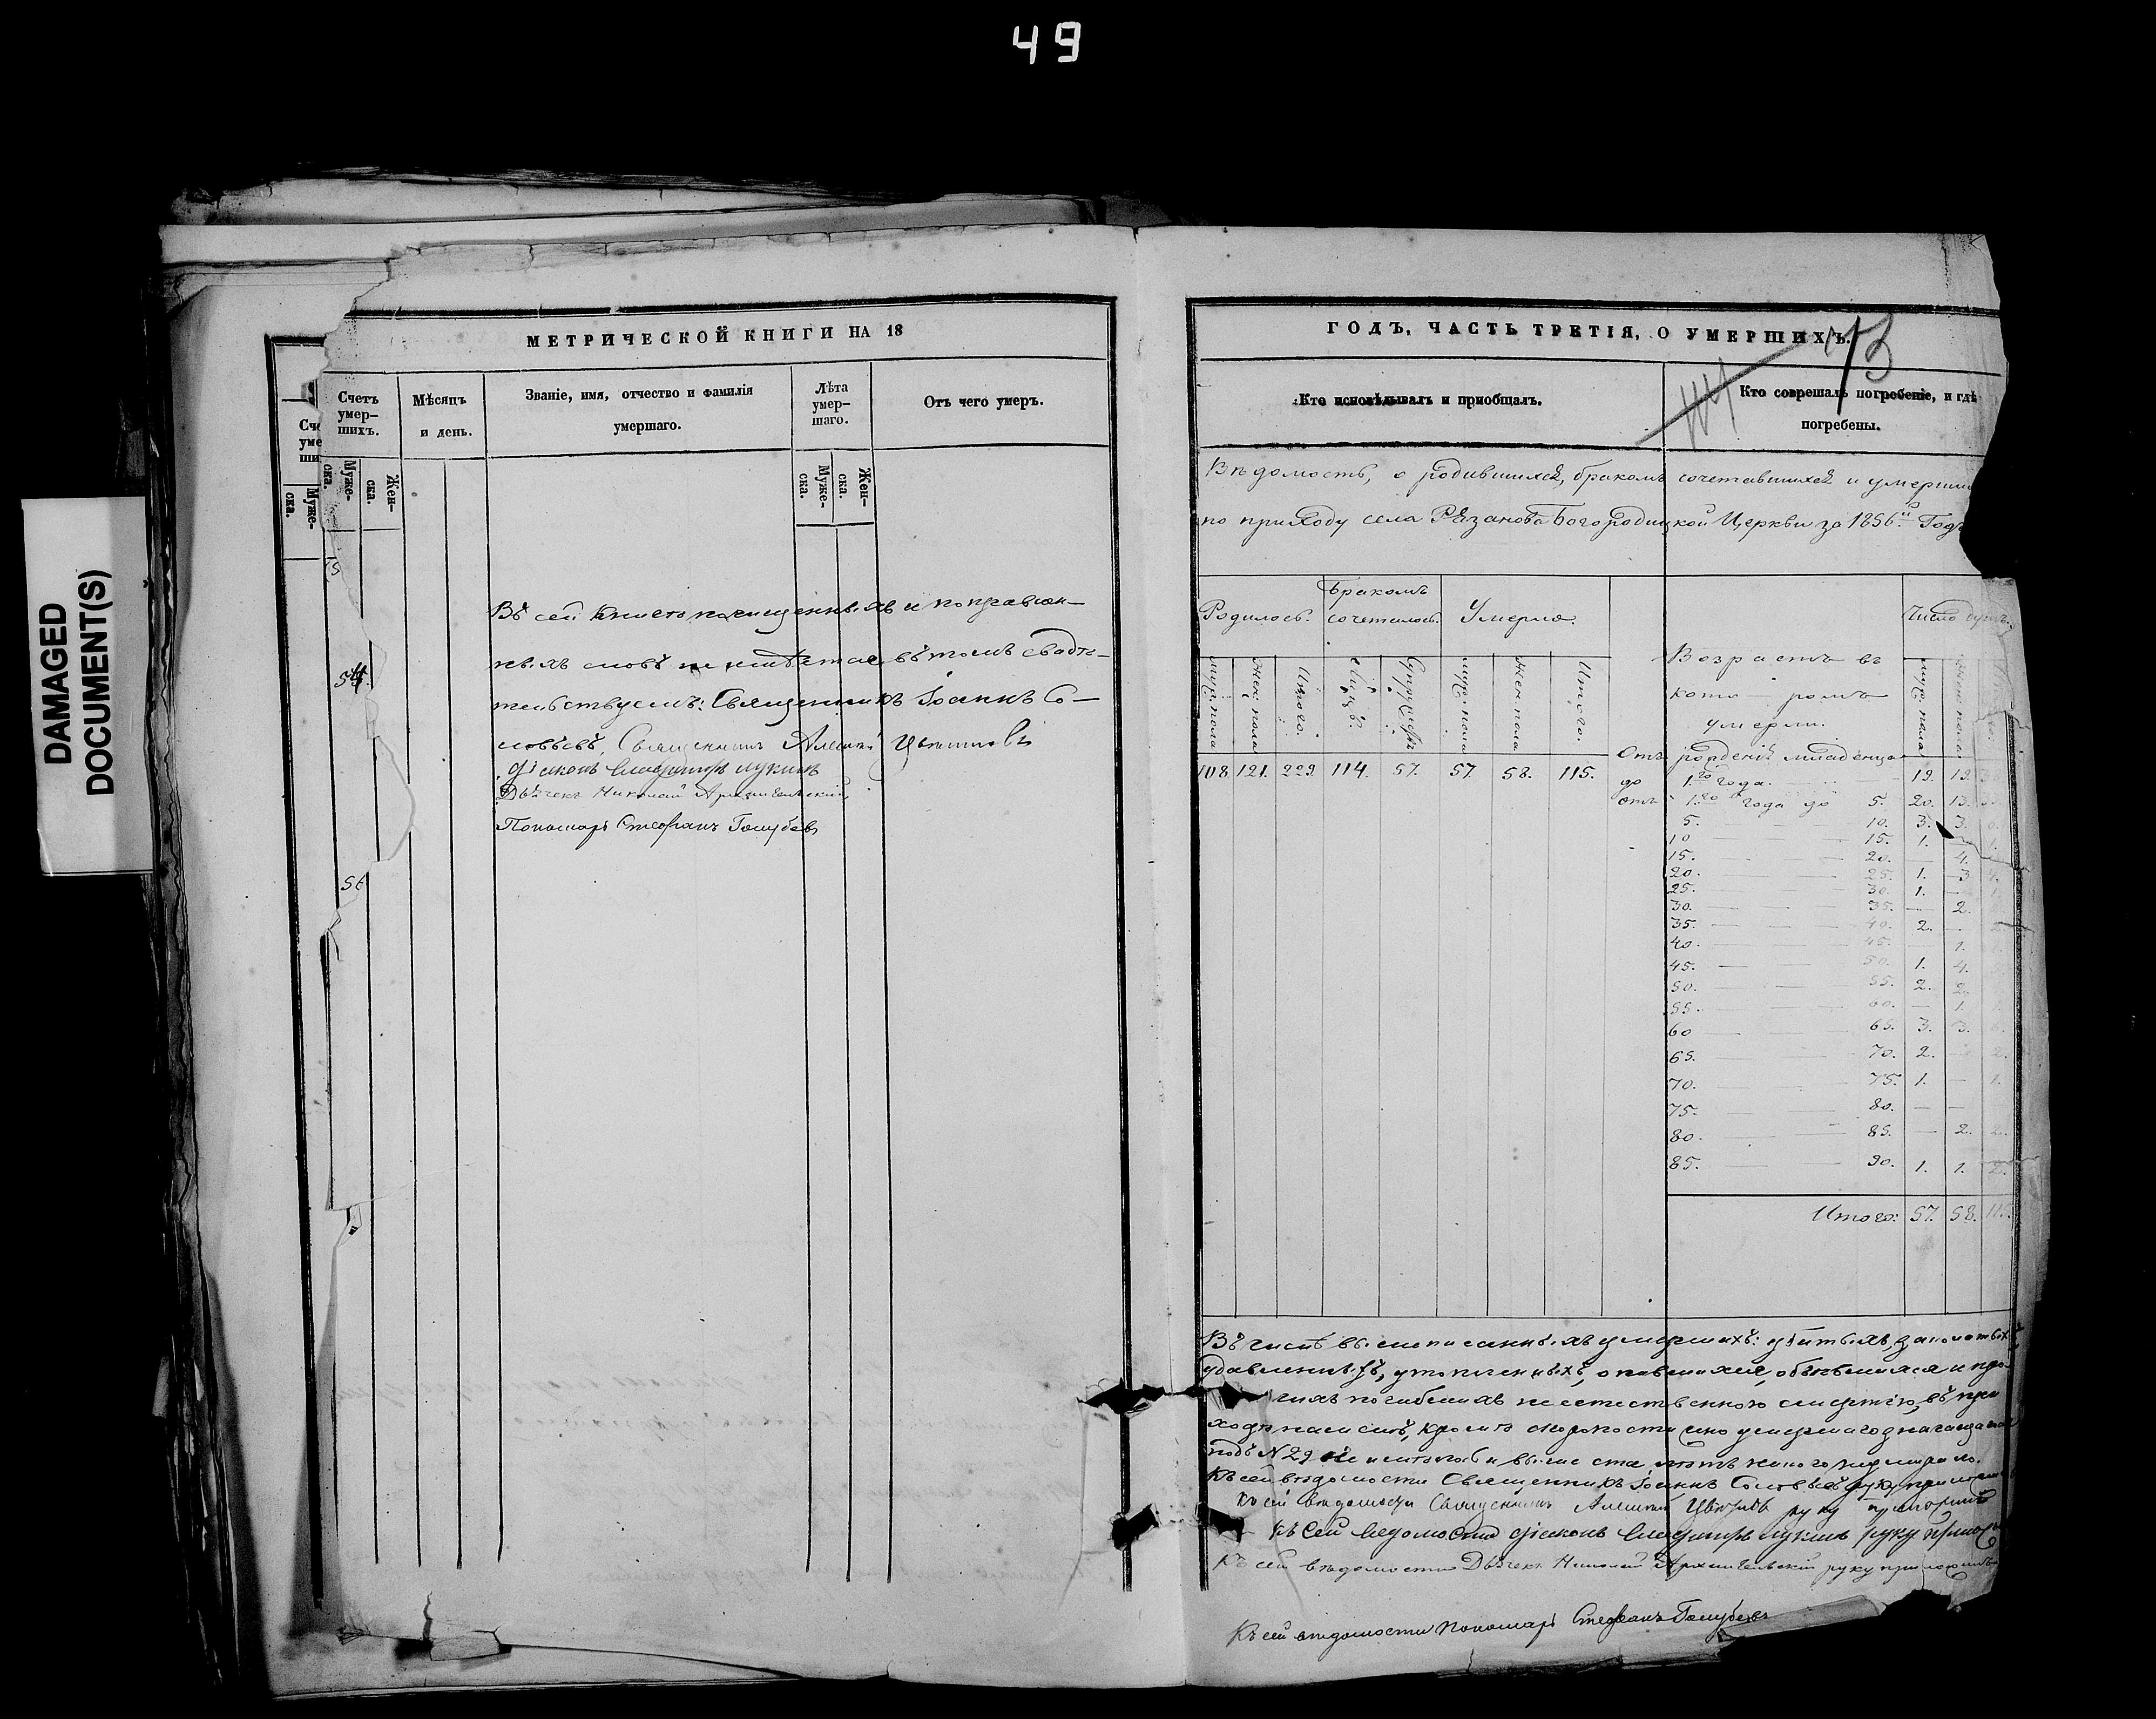 49
DAMAGED
DOCUMENT(S)
МЕТРИЧЕСКОЙ КНИГИ НА 18
Счетъ умер-шихъ.
Мѣсяцъ и день.
Званіе, имя, отчество и фамилія умершаго.
Лѣта умер-шаго.
Отъ чего умеръ.
Муже-ска.
Жен-ска.
Муже-ска.
Жен-ска.
Въ сей книгѣ почищенныхъ и поправлен-
ныхъ словъ не имѣется, въ томъ свидѣ-
тельствуемъ: Священникъ Іоаннъ Со-
ловьевъ, Священникъ Алексій Цвѣтковъ
Діаконъ Владиміръ Лукинъ
Дьячекъ Николай Архангельскій
Пономарь Стефанъ Голубевъ
ГОДЪ, ЧАСТЬ ТРЕТІЯ, О УМЕРШИХЪ.
Кто исповѣдывалъ и пріобщалъ.
Кто совершалъ погребеніе, и гдѣ погребены.
Вѣдомость, о родившихся, бракомъ сочетавшихся и умершихъ
по приходу села Рязанова Богородицкой Церкви за 1856й Годъ
Родилось.
Бракомъ сочеталось.
Умерло.
Возрастъ въ которомъ умерли.
Число душъ.
Муж. пола
Жен. пола
Итого.
Лицъ.
Супружествъ
Муж. пола
Жен. пола
Итого.
Муж. пола
Жен. пола
108. 121. 229. 114. 57. 57. 58. 115.
Отъ рожденія младенца
до 1го года. 19. 19.
отъ 1го года до 5. 20. 13.
5. — 10. 3. 3.
10 — 15. 1. —
15. — 20. — 4.
20. — 25. 1. 3
25. — 30. 1. —
30. — 35. — 2.
35. — 40. 2. —
40. — 45. — 1.
45. — 50. 1. 4.
50. — 55. 2. 2.
55. — 60. — 1.
60 — 65. 3. 3.
65. — 70. 2. — 2.
70. — 75. 1. — 1.
75. — 80. — —
80. — 85. — 2. 2.
85. — 90. 1. 1. 2.
Итого: 57. 58. 115.
Въ числѣ вышеписанныхъ умершихъ: убитыхъ, заколотыхъ,
удавленныхъ, утопленныхъ, опившихся, объѣвшихся и про-
чихъ погибшихъ неестественною смертію, въ при
ходѣ нашемъ, кромѣ скоропостижно умершаго
подъ N 29 не имѣлось и выше ста лѣтъ никого не умирало.
Къ сей вѣдомости Священникъ Іоаннъ Соловьевъ руку приложилъ
Къ сей вѣдомости Священникъ Алексій Цвѣтковъ руку приложилъ
Къ сей ведомости Діаконъ Владиміръ Лукинъ руку прилож
Къ сей вѣдомости Дьячекъ Николай Архангельскій руку приложилъ
Къ сей вѣдомости Пономарь Стефанъ Голубевъ